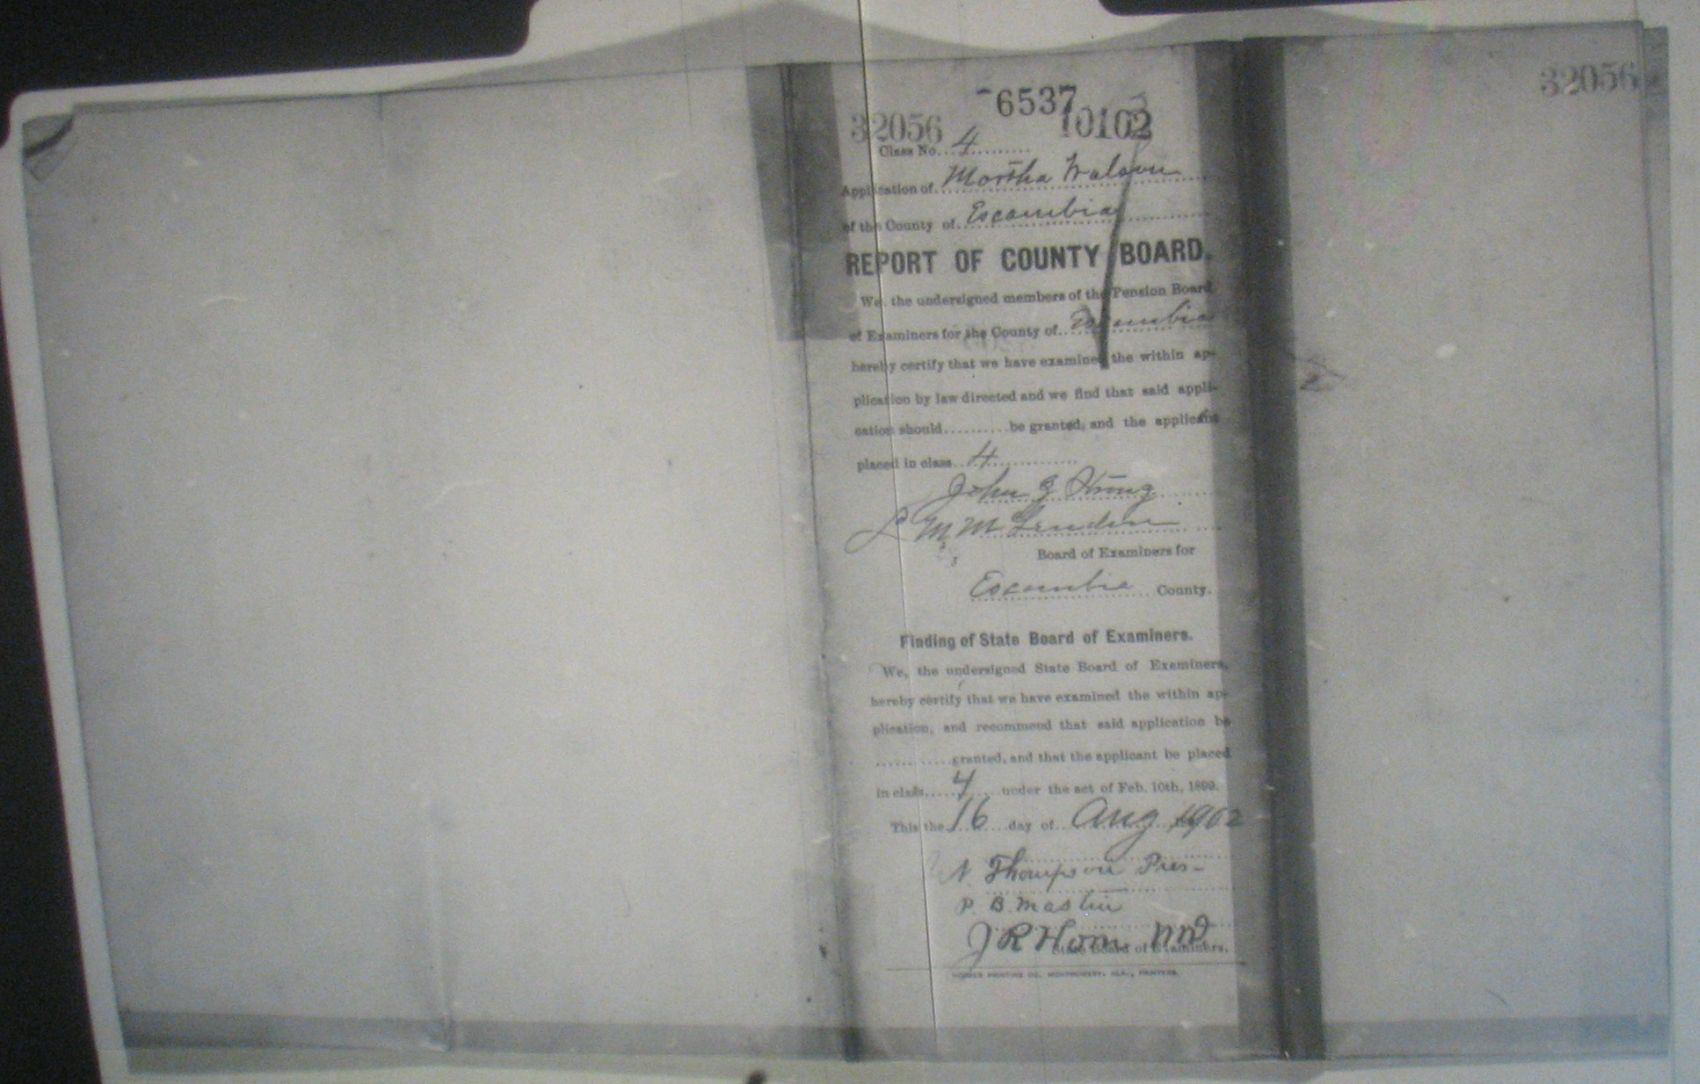 6537
32056 10102 32056
Class No. 4
Application of Martha
of the County of Escambia
REPORT OF COUNTY BOARD.
We, the undersigned members of the Pension Board
of Examiners for the County of Escambia
hereby certify that we have examined the within ap-
plication by law directed and we find that said appli-
cation should .......... be granted, and the applicant
placed in class 4
John
L M M
Board of Examiners for
Escambia County.
Finding of State Board of Examiners.
We, the undersigned State Board of Examiners,
hereby certify that we have examined the within ap-
plication, and recommend that said application be
.......... granted, and that the applicant be placed
in class 4 under the act of Feb. 10th, 1899.
This the 16 day of Aug 1902
Thompson Pres-
P. B. Mastin
J R Horn MD
State Board of Examiners.
PRINTING CO., MONTGOMERY, ALA., PRINTERS.